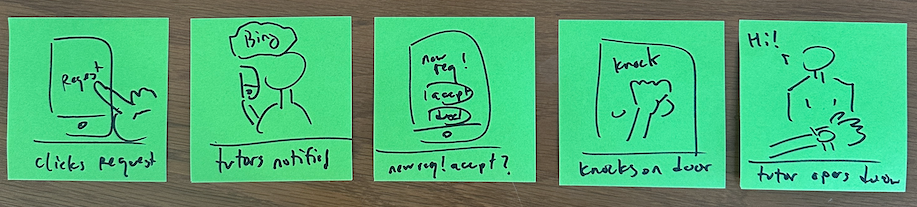 Request
clicks request
Bing
tutors notified
new
req!
accept
new req! accept?
knock
knocks on door
Hi!
tutor opens door